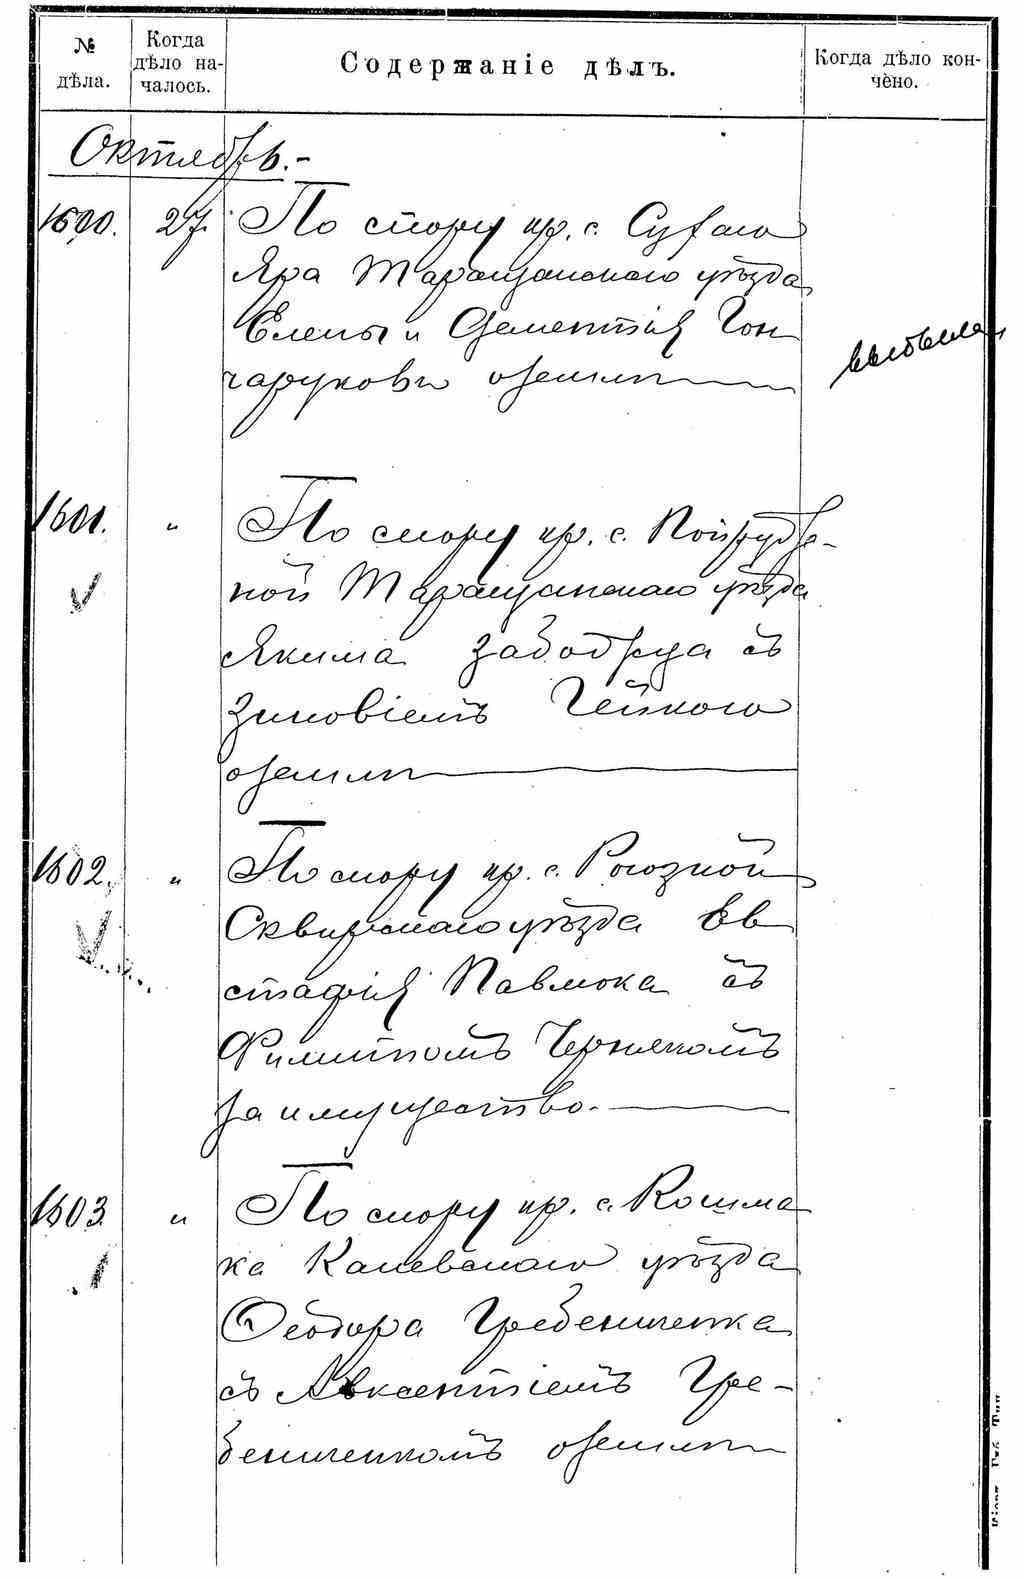 № дѣла.
Когда дѣло на-
чалось.
Содержаніе дѣлъ.
Когда дѣло кон-
чено.
Октябрь.-
1600. 27. По спору кр. с. Сухаго
Яра Таращанскаго уѣзда
Елены и Дементія Гон
чаруковъ о землѣ
1601. " По спору кр. с.
ной Таращанскаго уѣзда
Якима съ
Зиновіемъ
о землѣ
1602. " По спору кр. с. Рогозной
Сквирскаго уѣзда Ев
стафія Павлюка съ
Филиппомъ Чернякомъ
за имущество.
1603. " По спору кр. с. Кошма
ка Каневскаго уѣзда
Ѳеодора Гребениченка
съ Авксентіемъ Гре-
бениченкомъ о землѣ